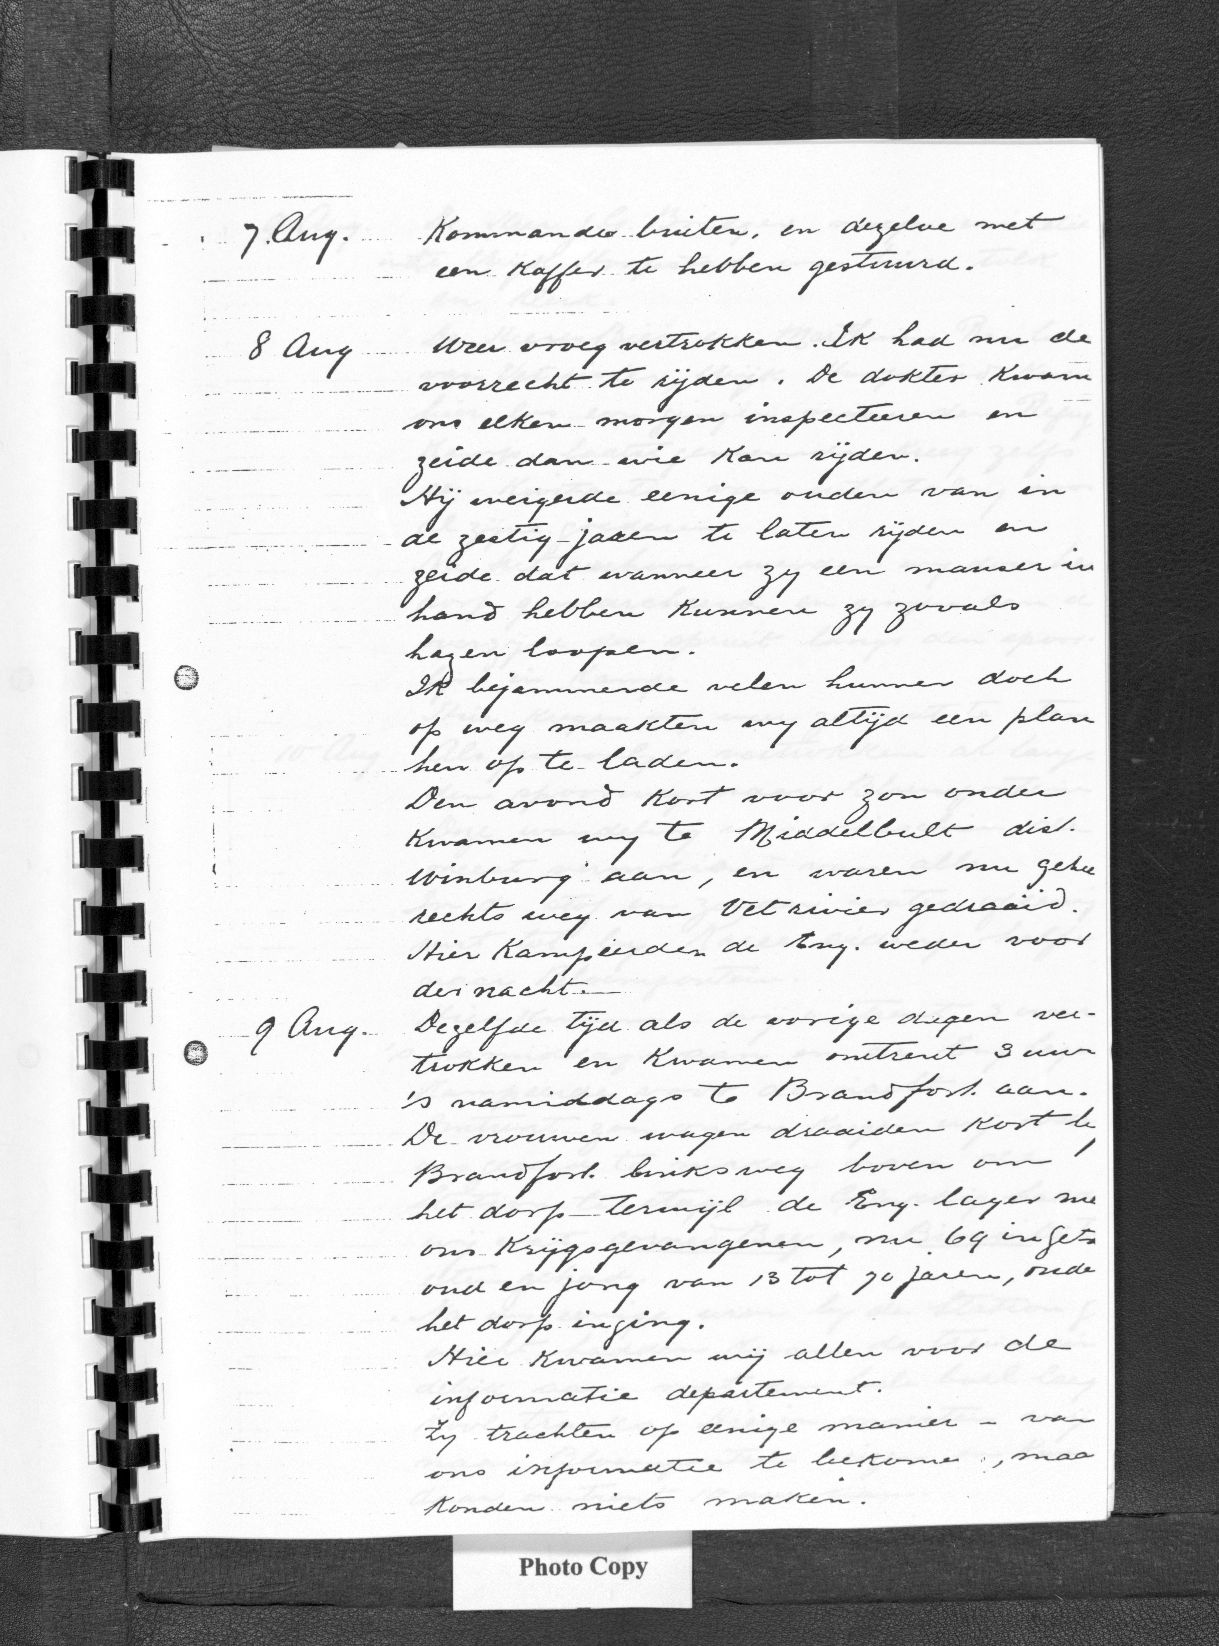 7. Aug. Kommando buiten, en dezelve met
een Kaffer te hebben gestuurd.
8 Aug Weer vroeg vertrokken. Ik had nu de
voorrecht te rijden. De dokter Kwam
ons elken morgen inspecteeren en
zeide dan wie Kan rijden.
Hij weigerde eenige ouden van in
de zestig jaren te laten rijden en
zeide dat wanneer zy een mauser in
hand hebben Kunnen zy zooals
hazen loopen.
Ik bejammerde velen hunner doch
op weg maakten wy altijd een plan
hen op te laden.
Den avond Kort voor zon onder
Kwamen wy te Middelbult dist.
Winburg aan, en waren nu gehee
rechts weg van Vet rivier gedraaid.
Hier Kampeerden de Eng. weder voor
der nacht.—
9 Aug. Dezelfde tijd als de vorige dagen ver-
trokken en Kwamen omtrent 3 uur
's namiddags te Brandfort. aan.
De vrouwen wagen draaiden Kort by
Brandfort. links weg boven om
het dorp terwijl de Eng. lager me
ons Krijgsgevangenen, nu 69 in geta
oud en jong van 13 tot 70 jaren, onde
het dorp inging.
Hier Kwamen wij allen voor de
informatie departement.
Zy trachten op eenige manier – van
ons informatie te bekome, maa
Konden niets maken.
Photo Copy